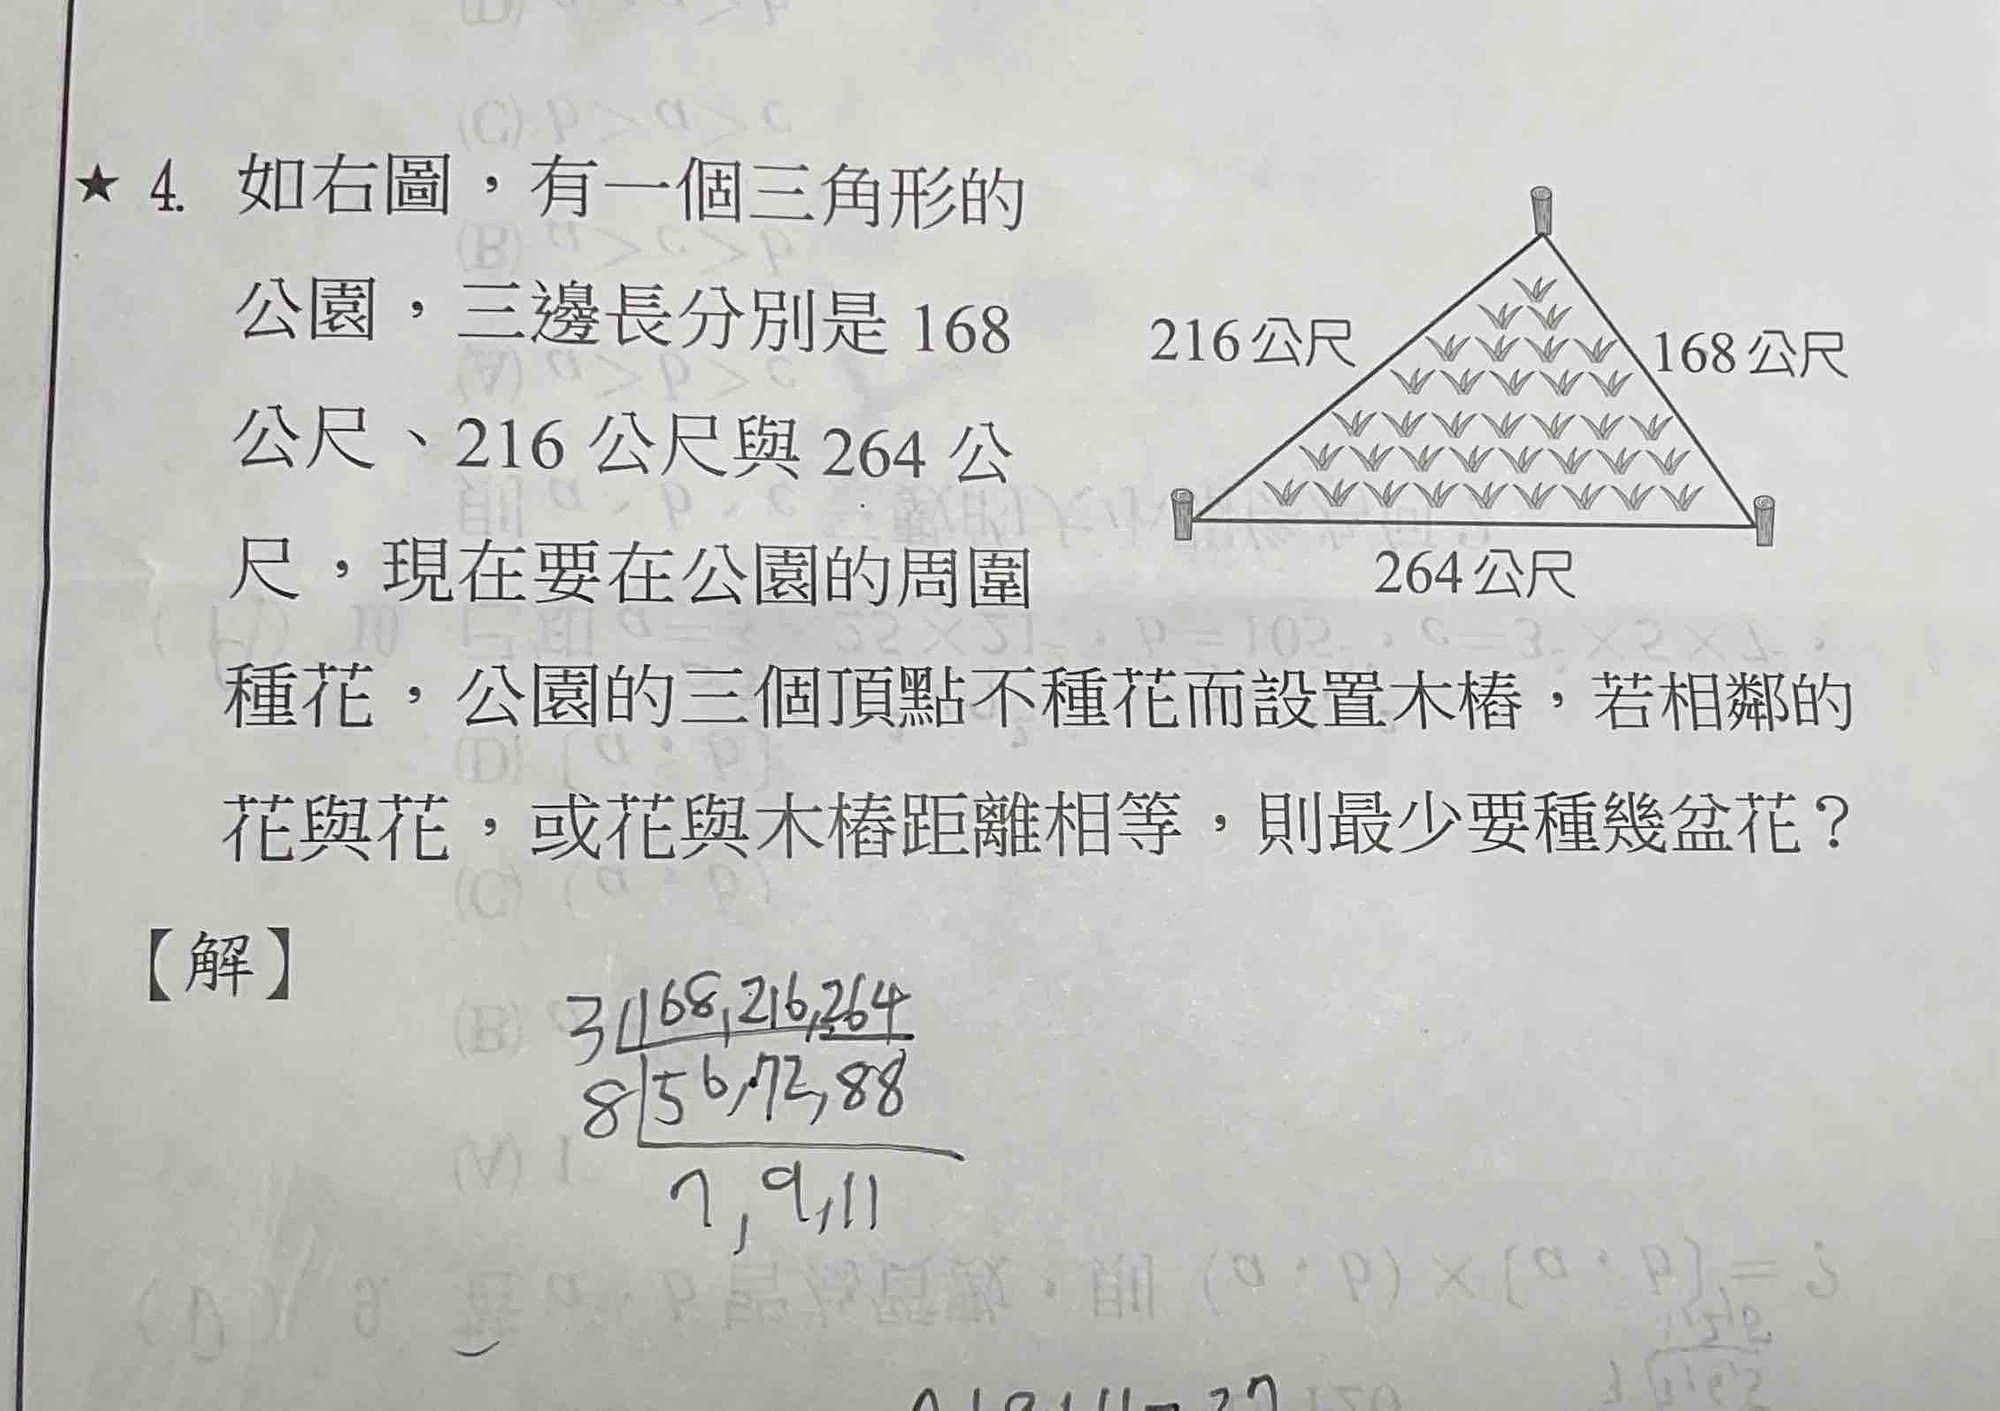 ★ 4. 如右圖，有一個三角形的
公園，三邊長分別是 168
公尺、216 公尺與 264 公
尺，現在要在公園的周圍
種花，公園的三個頂點不種花而設置木樁，若相鄰的
花與花，或花與木樁距離相等，則最少要種幾盆花？
216 公尺
168 公尺
264 公尺
【解】
3 168,216,264
8 56,72,88
7,9,11